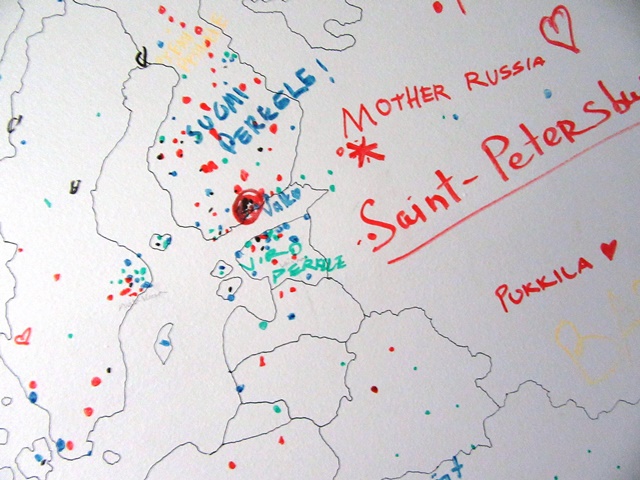 SUOMI
PERKELE!
MOTHER RUSSIA
Saint-Petersbu
Valko
VIRO
PERKELE
PUKKILA